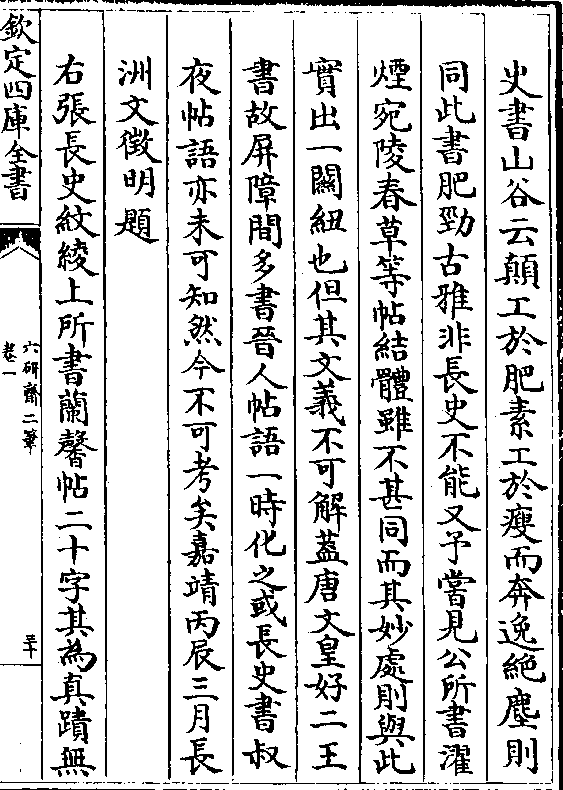 史書山谷云顛工於肥素工於瘦而奔逸絕塵則
同此書肥勁古雅非長史不能又予嘗見公所書濯
煙宛陵春草等帖結體雖不甚同而其妙處則與此
實出一關紐也但其文義不可解葢唐文皇好二王
書故屏障間多書晉人帖語一時化之或長史書叔
夜帖語亦未可知然今不可考矣嘉靖丙辰三月長
洲文徵明題
右張長史紋綾上所書蘭馨帖二十字其為真蹟無
欽定四庫全書
六研齋二筆
卷一
三十